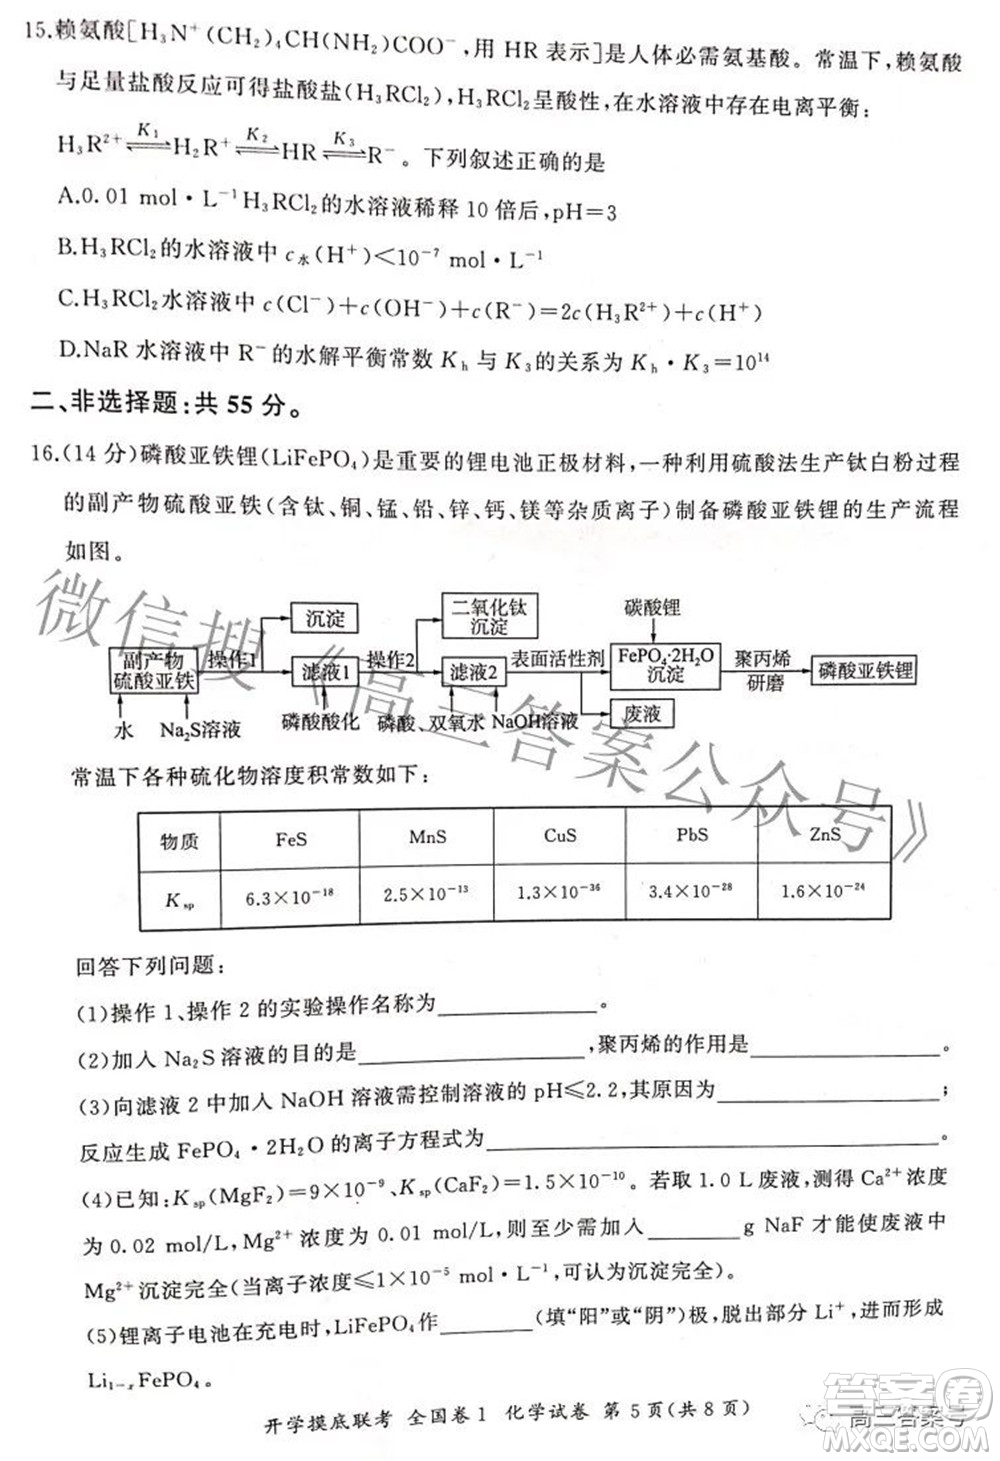 15.赖氨酸[H₃N⁺(CH₂)₄CH(NH₂)COO⁻,用 HR 表示]是人体必需氨基酸。常温下,赖氨酸
与足量盐酸反应可得盐酸盐(H₃RCl₂),H₃RCl₂呈酸性,在水溶液中存在电离平衡:
H₃R²⁺ ⇌K₁ H₂R⁺ ⇌K₂ HR ⇌K₃ R⁻。下列叙述正确的是
A.0.01 mol·L⁻¹H₃RCl₂的水溶液稀释 10 倍后,pH=3
B.H₃RCl₂的水溶液中 c水(H⁺)<10⁻⁷ mol·L⁻¹
C.H₃RCl₂水溶液中 c(Cl⁻)+c(OH⁻)+c(R⁻)=2c(H₃R²⁺)+c(H⁺)
D.NaR 水溶液中 R⁻的水解平衡常数 Kh 与 K₃的关系为 Kh·K₃=10¹⁴
二、非选择题:共 55 分。
16.(14 分)磷酸亚铁锂(LiFePO₄)是重要的锂电池正极材料,一种利用硫酸法生产钛白粉过程
的副产物硫酸亚铁(含钛、铜、锰、铅、锌、钙、镁等杂质离子)制备磷酸亚铁锂的生产流程
如图。
沉淀 二氧化钛沉淀 碳酸锂
副产物硫酸亚铁 操作1 滤液1 操作2 滤液2 表面活性剂 FePO₄·2H₂O沉淀 聚丙烯 研磨 磷酸亚铁锂
水 Na₂S溶液 磷酸酸化 磷酸、双氧水 NaOH溶液 废液
常温下各种硫化物溶度积常数如下:
物质 FeS MnS CuS PbS ZnS
Ksp 6.3×10⁻¹⁸ 2.5×10⁻¹³ 1.3×10⁻³⁶ 3.4×10⁻²⁸ 1.6×10⁻²⁴
回答下列问题:
(1)操作 1、操作 2 的实验操作名称为________。
(2)加入 Na₂S 溶液的目的是________,聚丙烯的作用是________。
(3)向滤液 2 中加入 NaOH 溶液需控制溶液的 pH≤2.2,其原因为________;
反应生成 FePO₄·2H₂O 的离子方程式为________。
(4)已知:Ksp(MgF₂)=9×10⁻⁹、Ksp(CaF₂)=1.5×10⁻¹⁰。若取 1.0 L 废液,测得 Ca²⁺浓度
为 0.02 mol/L,Mg²⁺浓度为 0.01 mol/L,则至少需加入________g NaF 才能使废液中
Mg²⁺沉淀完全(当离子浓度≤1×10⁻⁵ mol·L⁻¹,可认为沉淀完全)。
(5)锂离子电池在充电时,LiFePO₄作________(填“阳”或“阴”)极,脱出部分 Li⁺,进而形成
Li₁₋ₓFePO₄。
开学摸底联考 全国卷 1 化学试卷 第 5 页(共 8 页)
微信搜《高三答案公众号》
高三答案号
答案圈
MXQE.COM